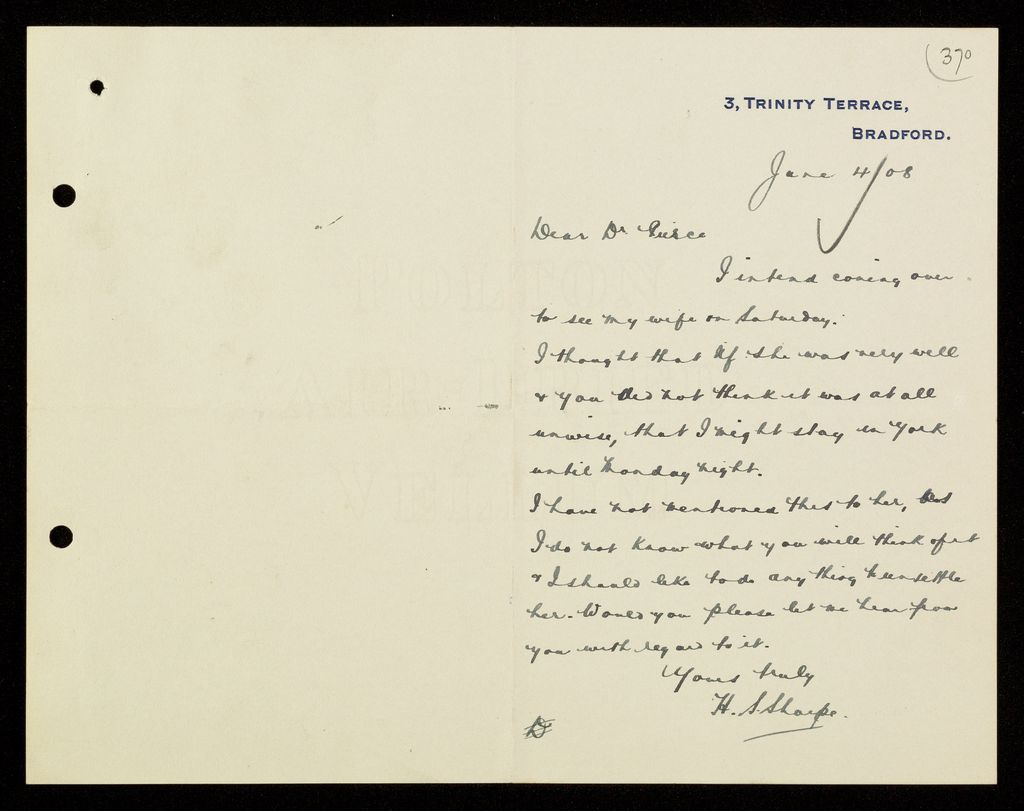 370
3, TRINITY TERRACE,
BRADFORD.
June 4/08
Dear Dr Pierce
I intend coming over
to see my wife on Saturday.
I thought that if she was very well
& you did not think it was at all
unwise, that I might stay in York
until Monday night.
I have not mentioned this to her, as
I do not know what you will think of it
& I should like to do any thing to unsettle
her. Would you please let me hear from
you with regard to it.
Yours truly
H. S. Sharpe.